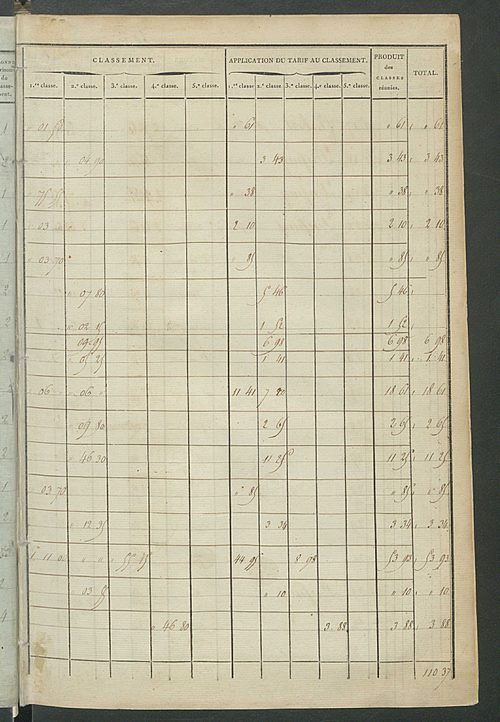 CLASSEMENT. APPLICATION DU TARIF AU CLASSEMENT. PRODUIT des CLASSES réunies. TOTAL.
1.re classe. 2.e classe. 3.e classe. 4.e classe. 5.e classe. 1.re classe. 2.e classe. 3.e classe. 4.e classe. 5.e classe.
61 61 61
3 43 3 43 3 43
38 38 38
03 2 10 2 10 2 10
03 70 85 85 85
07 80 5 46 5 46
1 52 1 52
6 98 6 98 6 98
1 41 1 41 1 41
06 06 11 41 7 20 18 61 18 61
09 80 2 65 2 65 2 65
46 30 11 25 11 25 11 25
03 70 85 85 85
3 34 3 34 3 34
44 95 8 98 53 93 53 93
03 10 10 10
46 80 3 88 3 88 3 88
110 37